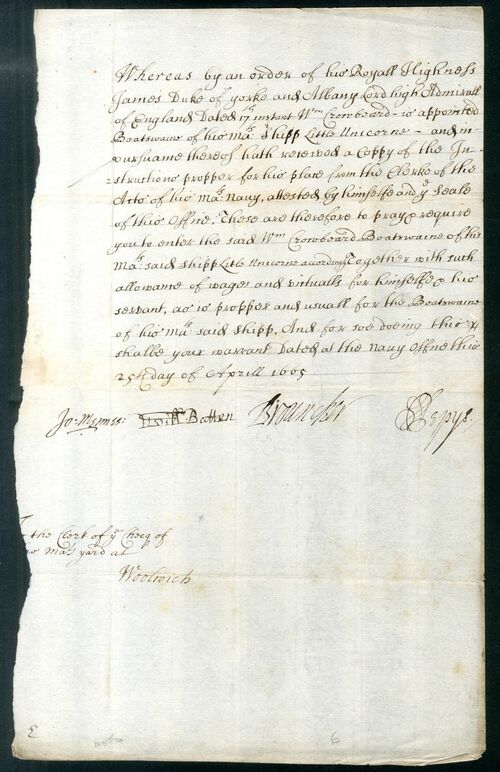 Whereas by an order of his Royall Highness
James Duke of yorke and Albany Lord high Admirall
of England Dated 17th instant Wm Crowbeard is appointed
Boatswaine of his Mats Shipp Little Unicorne - and in
pursuance thereof hath received a Coppy of the In-
structions propper for his place from the Clerke of the
Acts of his Mats Navy, attested by himselfe and ye Seale
of this Office. These are therefore to pray & require
you to enter the said Wm Crowbeard Boatswaine of his
Mats said shipp Little Unicorne accordingly Together with such
allowance of wages and victualls for himselfe & his
servant, as is propper and usuall for the Boatswaine
of his Mats said shipp. And for soe dooing this
shalbe your warrant Dated at the Navy Office this
25th day of Aprill 1665
Jo: Mennes: Will Batten Brouncker S Pepys.
the Clerk of ye Cheq of
Mats yard at
Woolwich
6